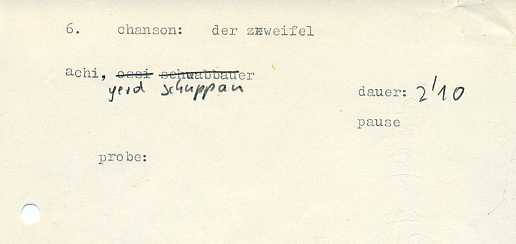 6. chanson: der zweifel
achi, ossi schwabbauer
gerd schuppan
dauer: 2'10
pause
probe: